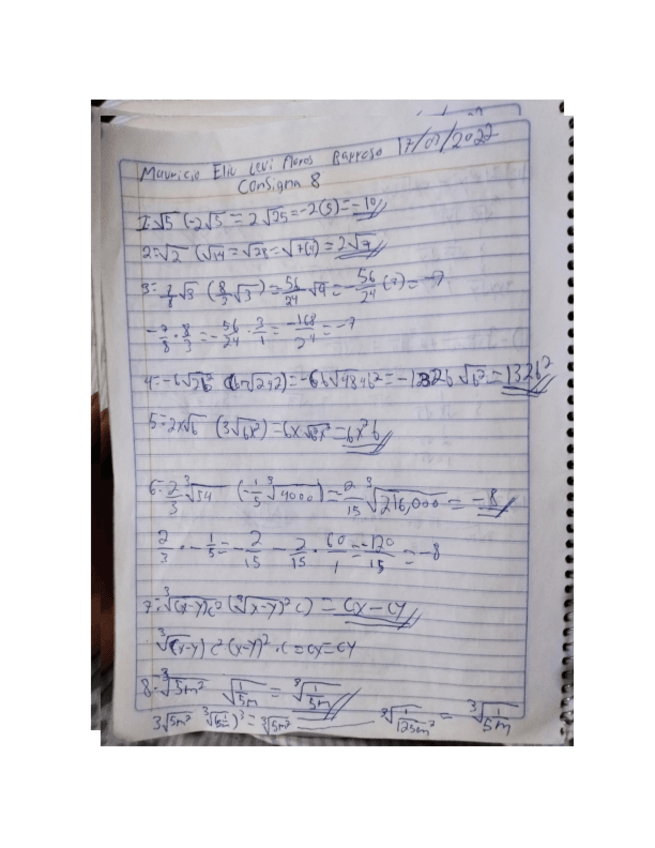 Mauricio Eliu Levi Flores 17/01/2022
Consigna 8
1=√5 (-2√5 = 2√25 = -2(5) = -10
2=√2 (√14 = √28 = √7(4) = 2√7
3= 7/8 √3 (8/3 √3) = 56/24 √9 = -56/24 (3) = -7
-7/8 · 8/3 = -56/24 · 3/1 = -168/24 = -7
4=-6√2b² (b√242) = -6b√484b² = -132b √b² = 132b²
5=2x√6 (3√6x²) = 6x = 6x²6
6= 2/3 ³√54 (-1/5 ³√4000) = 2/15 ³√216,000 = -8
2/3 · -1/5 = -2/15 - 2/15 · 60/1 = -120/15 = -8
7=³√(x-y)c² (³√(x-y)² c) = cx-cy
³√(x-y) c² (x-y)² · c = cx=cy
8=³√5m² √1/5m = ³√1/5m
3√5m² = ³√5m² ³√1/125m³ = ³√1/5m